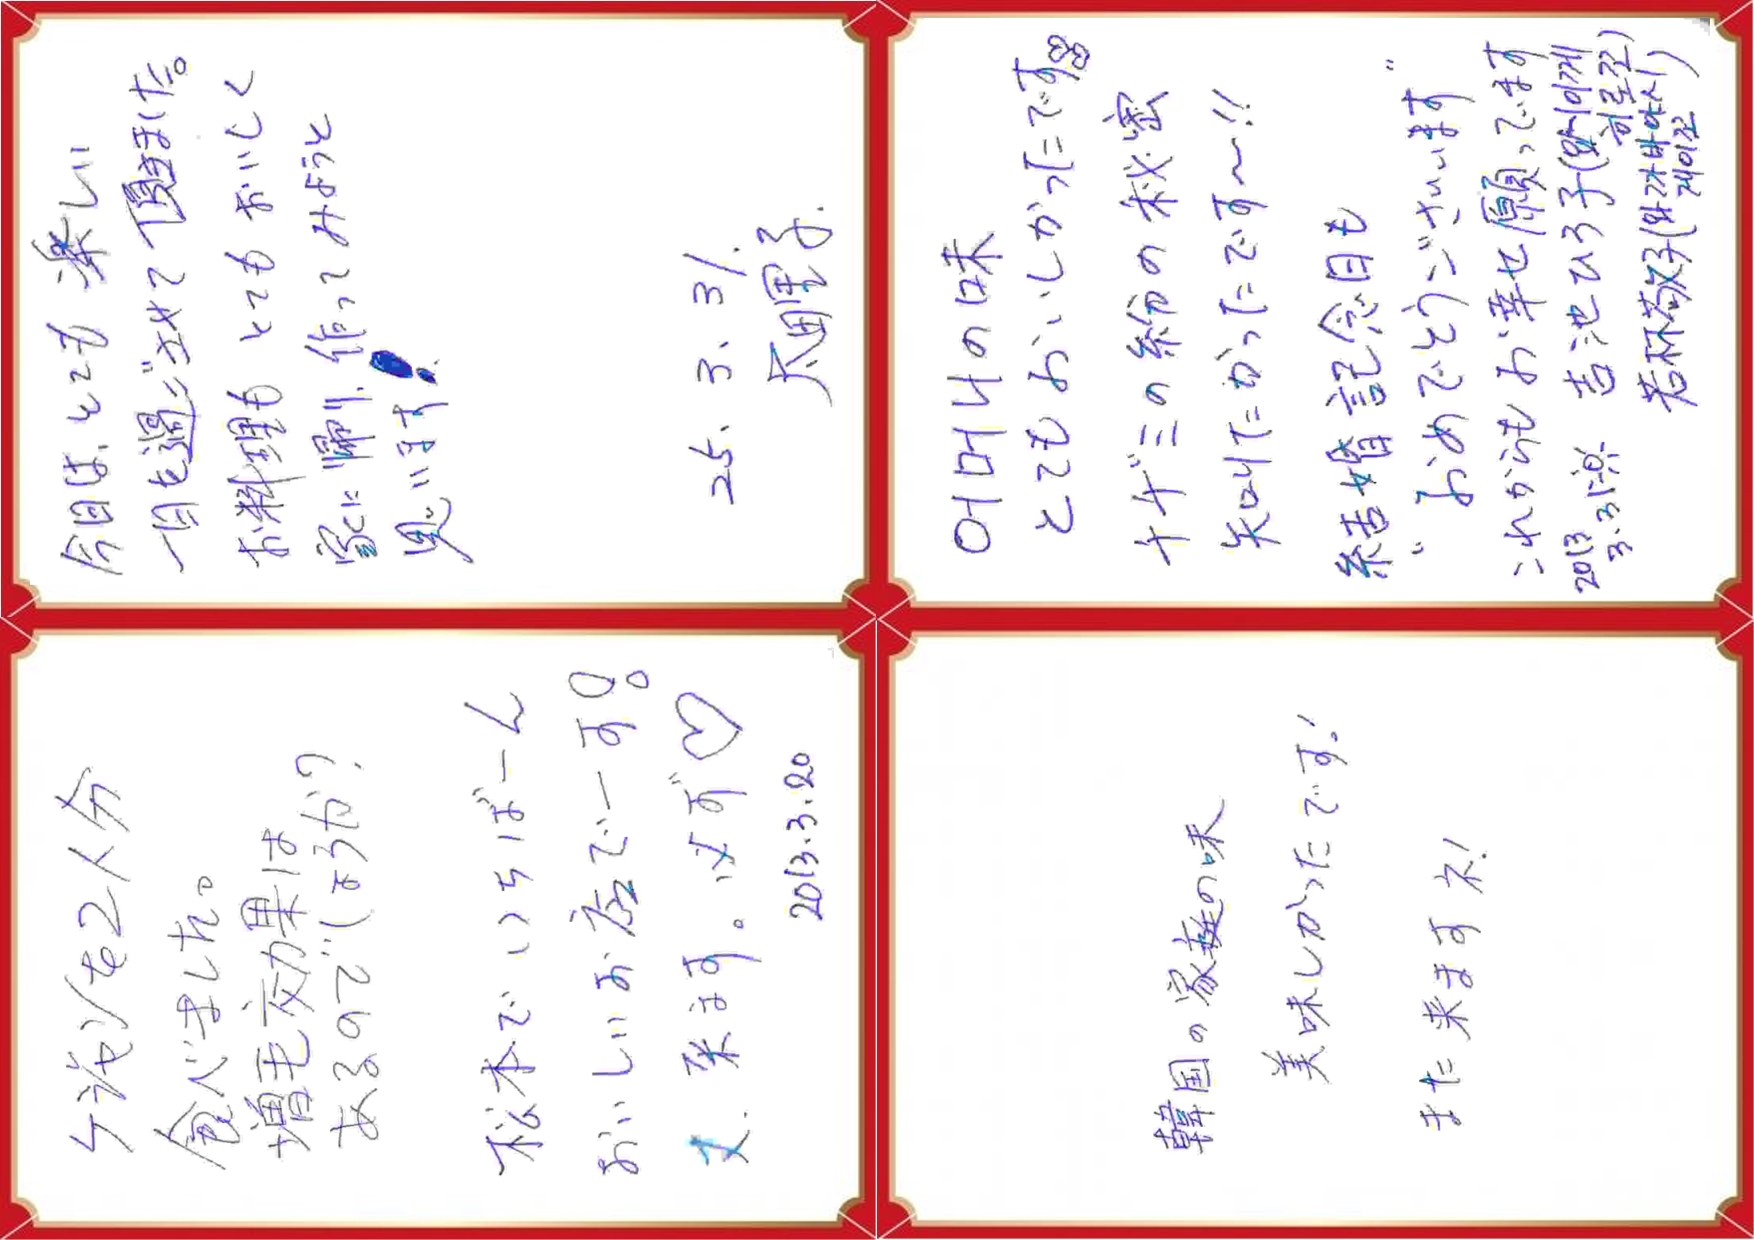 今日は、とても楽しい
一日を過ごさせて頂きました。
お料理も とても おいしく
家に帰り、作ってみようと
思います!
25. 3. 31.
어머니の味
とてもおいしかったです
チヂミの粉の秘密
知りたかったです〜!!
結婚記念日も
"おめでとうございます"
これからもお幸せ願ってます
2013 3.31
吉池ひろ子
若林敬子(와까바야시 게이꼬)
ケジャンを2人分
食べました。
増毛効果は
あるのでしょうか?
松本でいちばーん
おいしいお店でーす。
又、来ます。必ず♡
2013.3.20
韓国の家庭の味
美味しかったです!
また来ますネ!